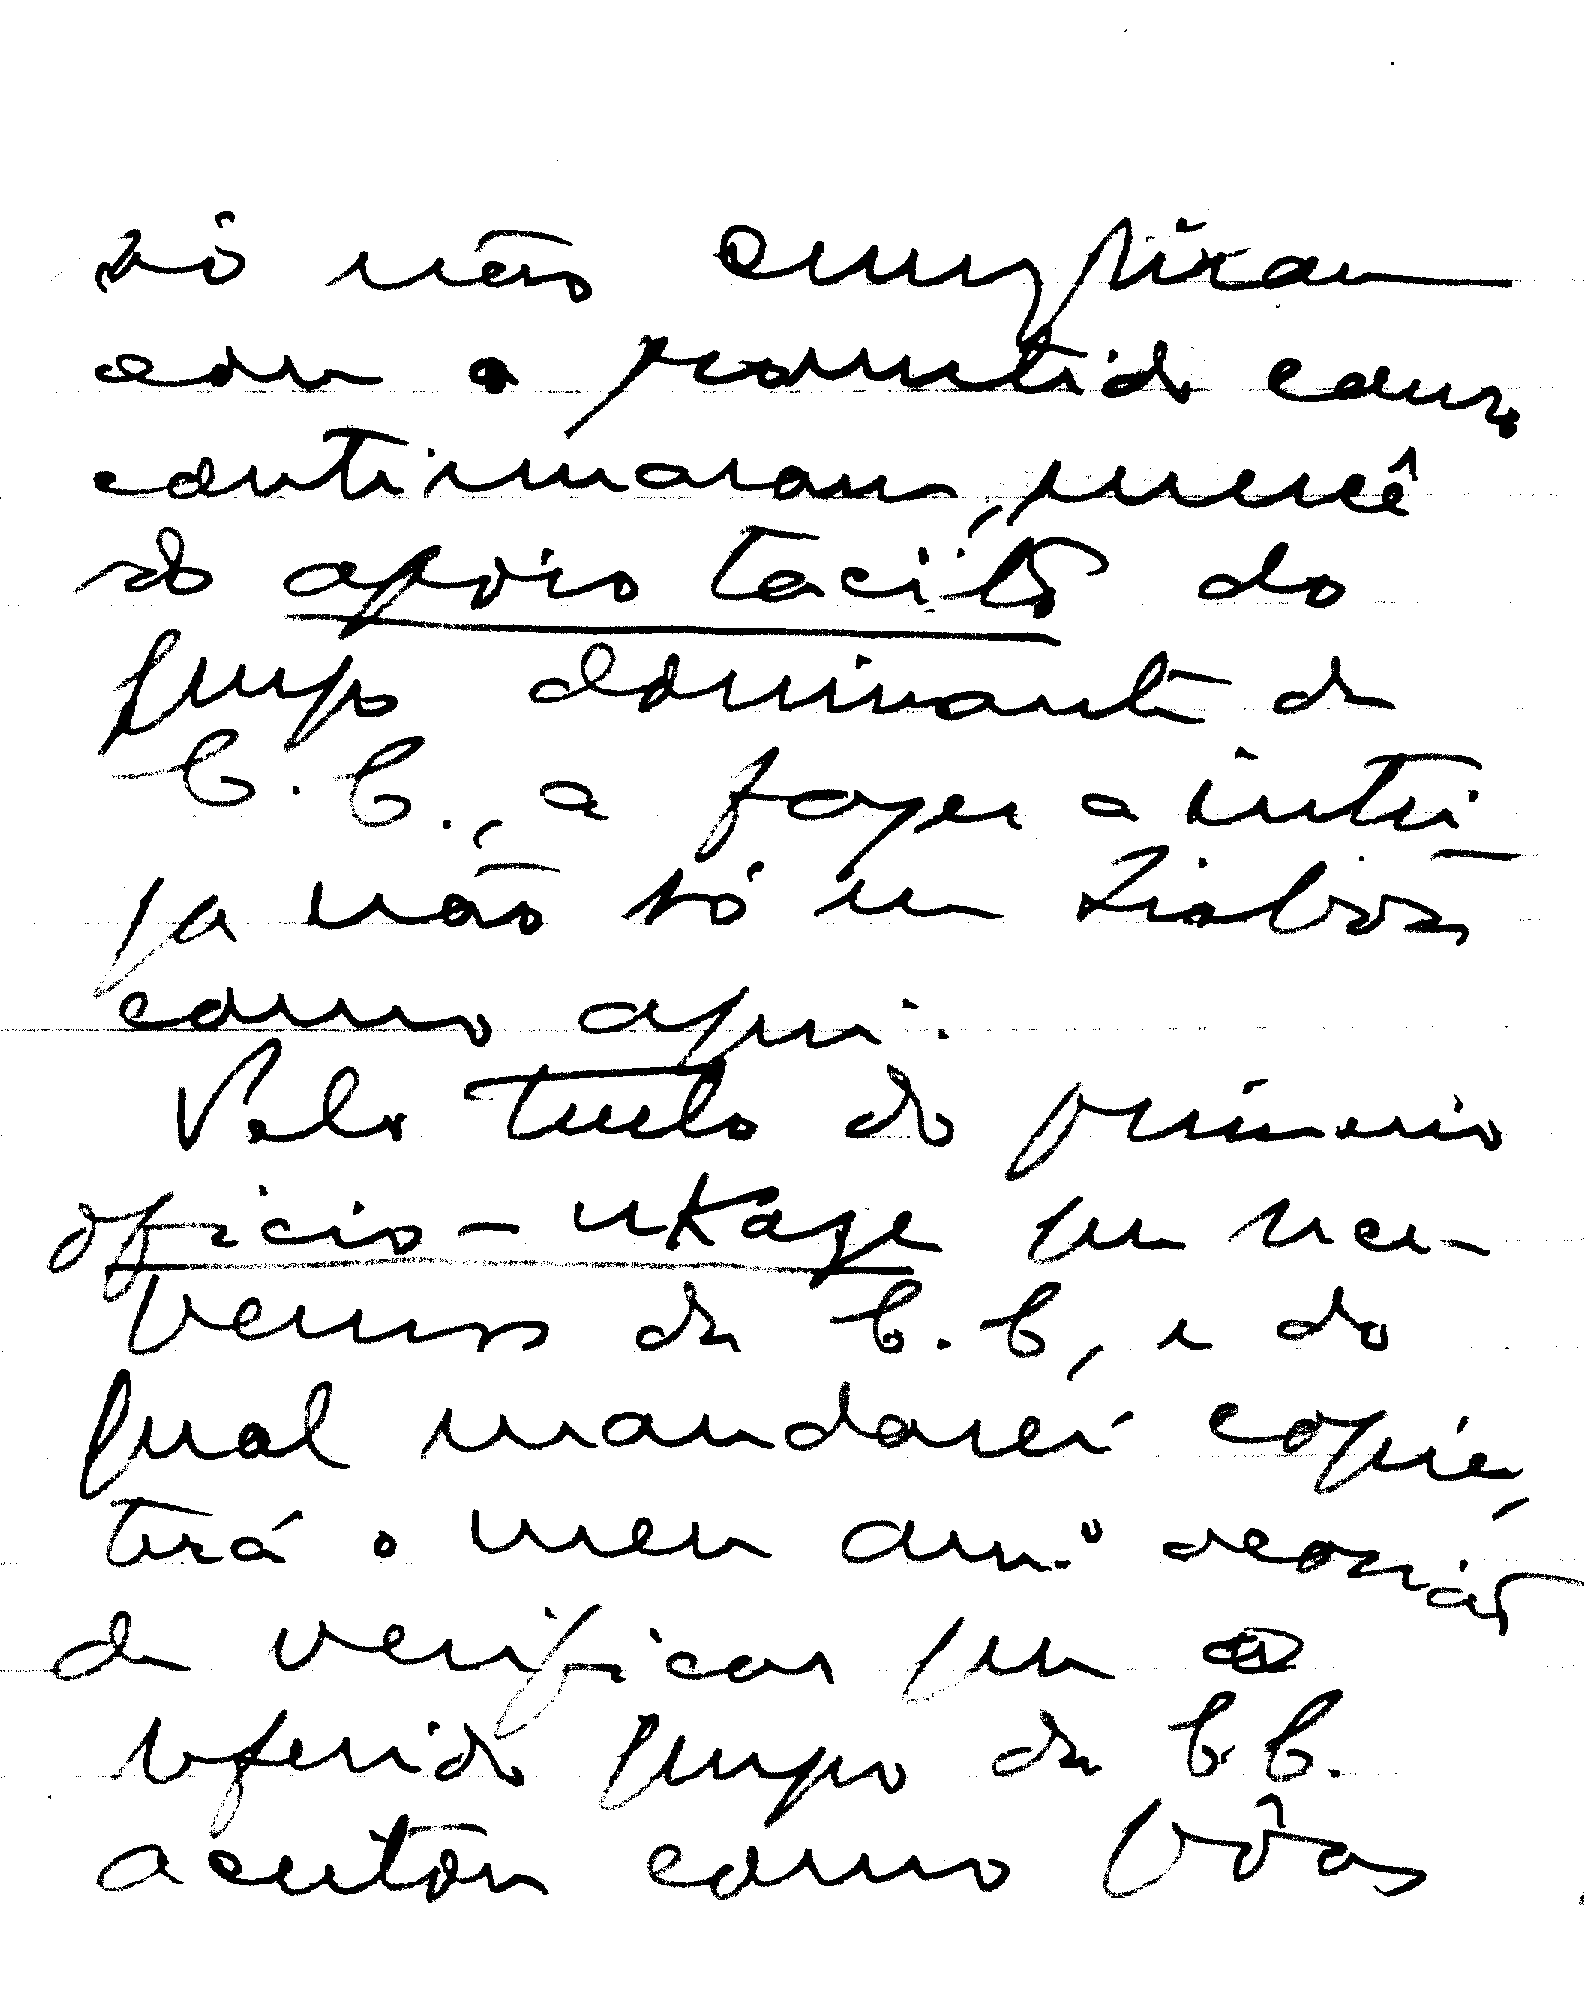 só não cumpriram
com o prometido como
continuaram, mercê
do apoio tacito do
grupo dominante da
C. C., a fazer a intri
ga não só em Lisboa
como aqui.
Pelo texto do primeiro
oficio-ukase que rece-
bemos da C. C., e do
qual mandarei copia,
terá o meu am.º ocasião
de verificar que o
referido grupo da C. C.
aceitou como bôas